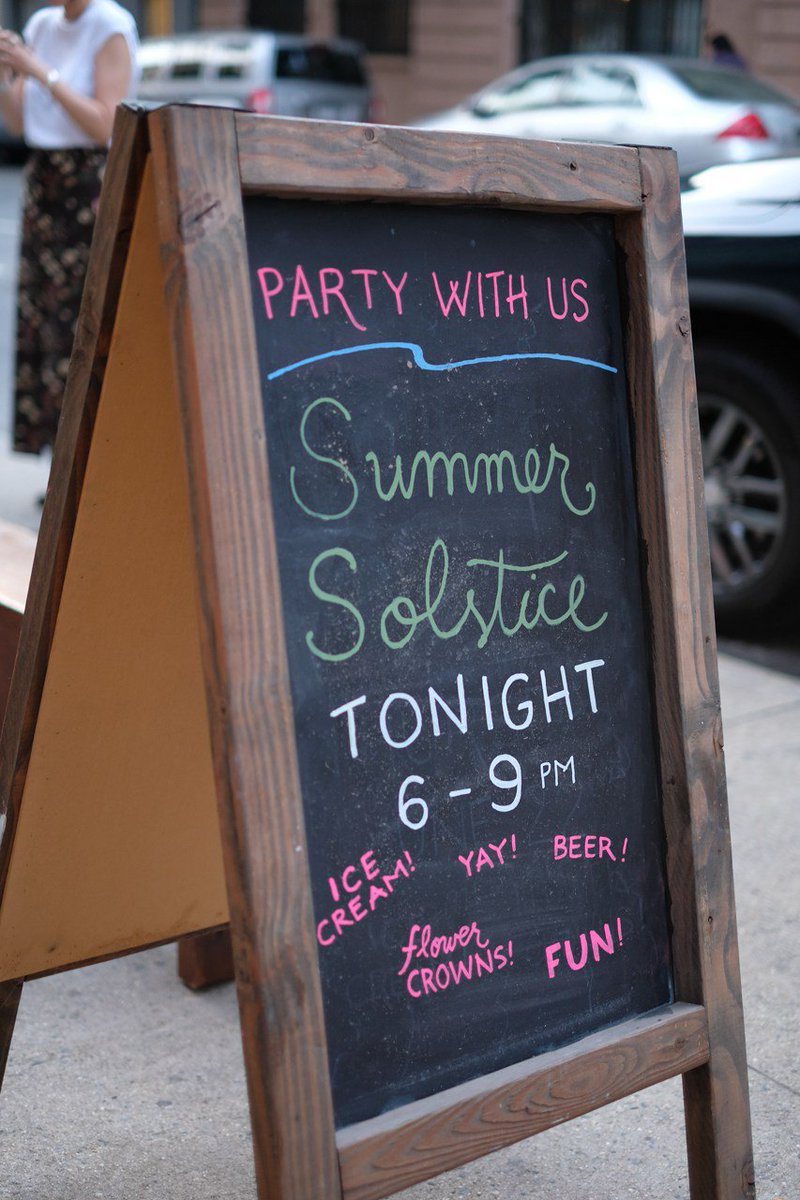 PARTY WITH US
Summer
Solstice
TONIGHT
6-9 PM
ICE CREAM! YAY! BEER!
flower CROWNS! FUN!